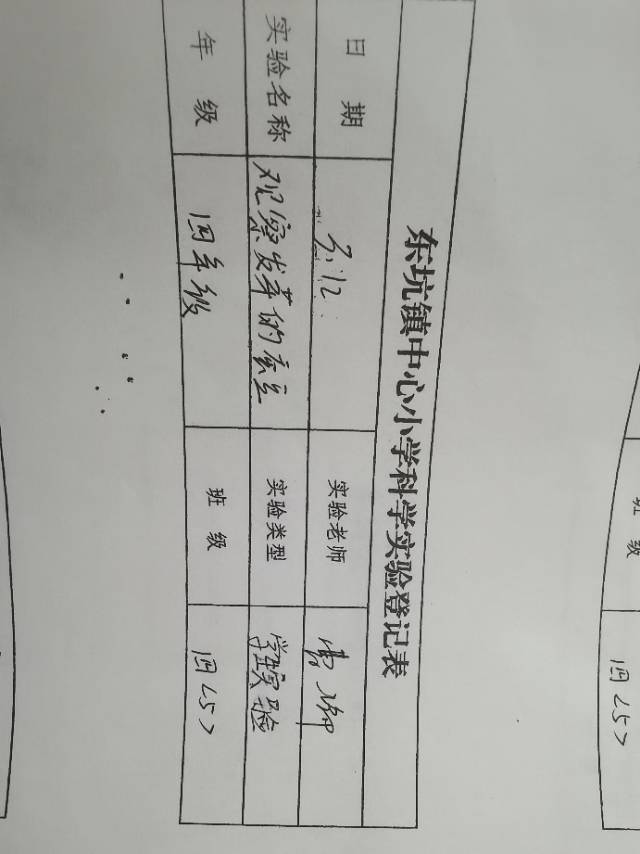 东坑镇中心小学科学实验登记表
日 期 3.12 实验老师
实验名称 观察发芽的蚕豆 实验类型 学生实验
年 级 四年级 班 级 四<5>
班 级 四<5>